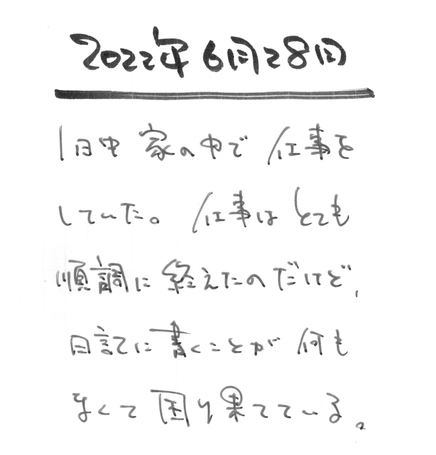 2022年6月28日
1日中 家の中で 仕事を
していた。 仕事は とても
順調に 終えたのだけど、
日記に 書くことが 何も
なくて 困り果てている。